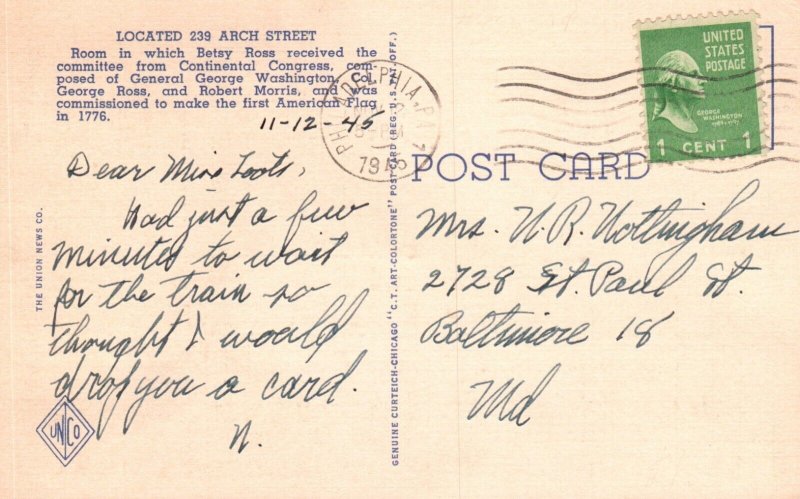 LOCATED 239 ARCH STREET
Room in which Betsy Ross received the
committee from Continental Congress, com-
posed of General George Washington, Col.
George Ross, and Robert Morris, and was
commissioned to make the first American Flag
in 1776.
11-12-45
Dear Miss Loots,
Had just a few
minutes to wait
for the train so
thought I would
drop you a card.
N.
THE UNION NEWS CO.
UN Co
GENUINE CURTEICH-CHICAGO "C.T. ART-COLORTONE" POST CARD (REG. U.S. PAT. OFF.)
PHILADELPHIA, PA.
1945
UNITED
STATES
POSTAGE
GEORGE
WASHINGTON
1789-1797
1 CENT 1
POST CARD
Mrs. N. R. Nottingham
2728 St. Paul St.
Baltimore 18
Md